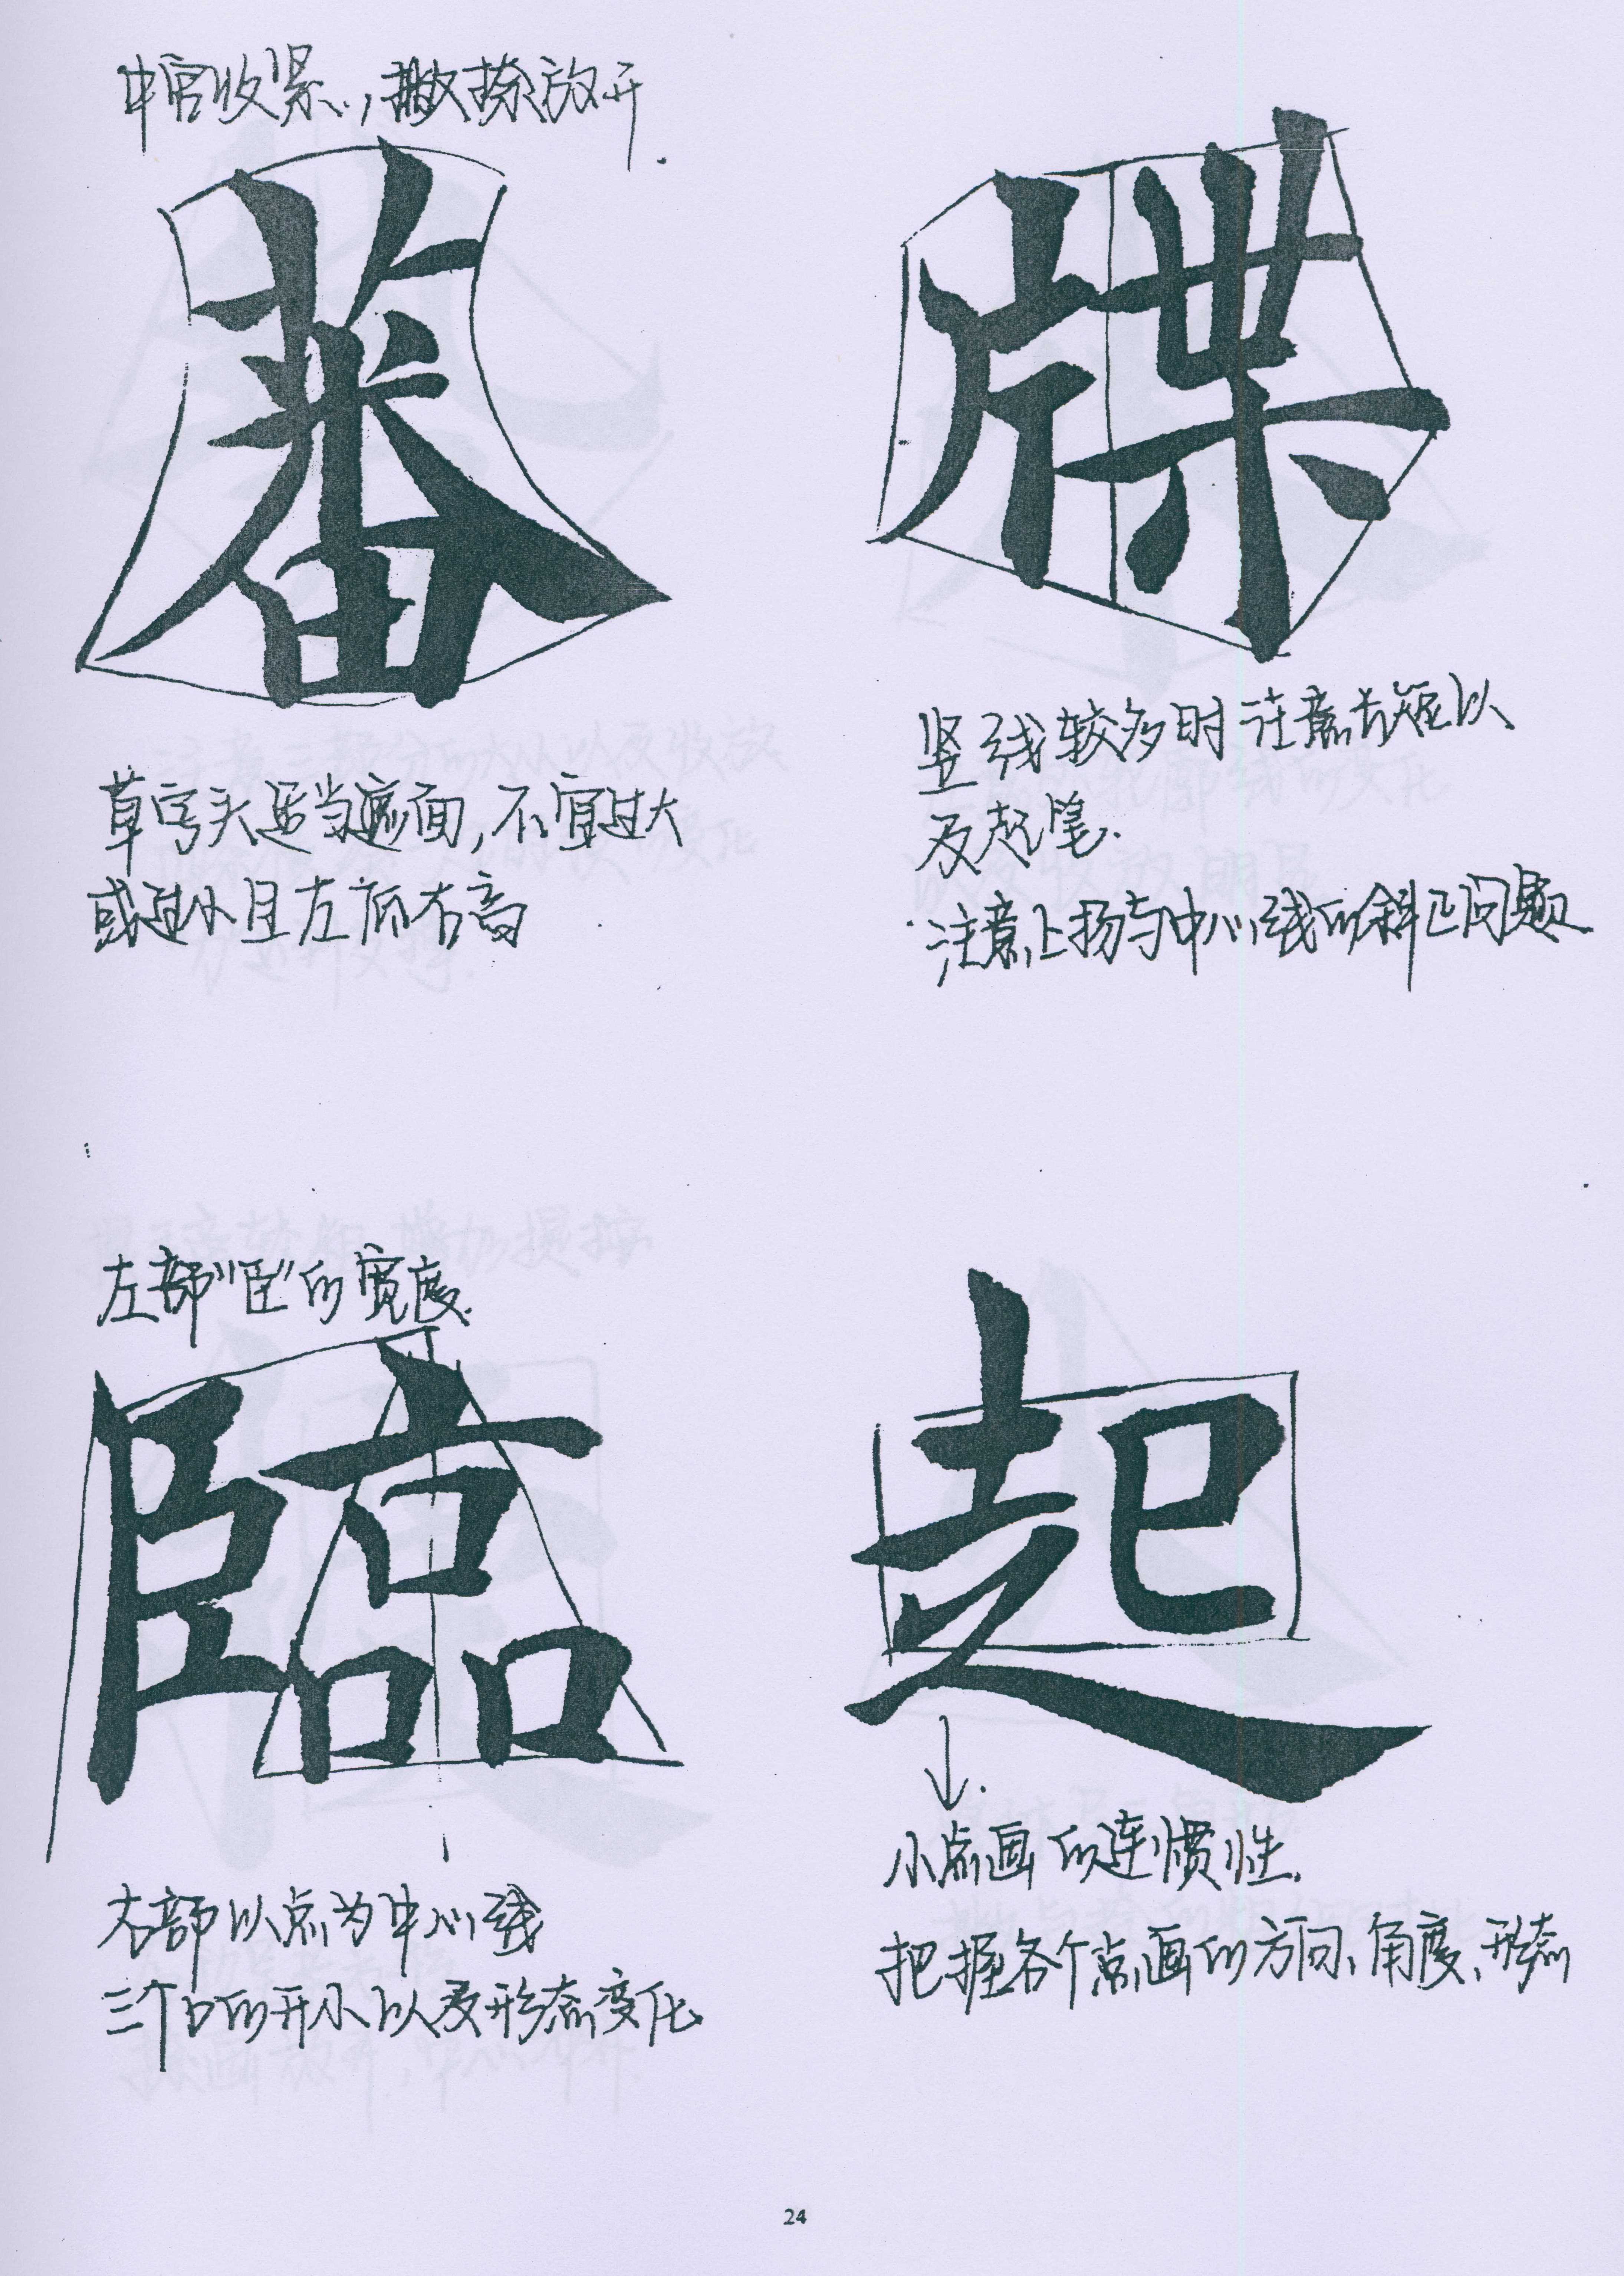 中宫收紧，撇捺放开.
蕃
草字头适当遮面，不宜过大
或过小且左底右高
牒
竖线较多时注意长短以
及起笔.
注意上扬与中心线的斜正问题
左部“臣”的宽度.
臨
右部以点为中心线
三个口的开小以及形态变化
起
小点画的连惯性.
把握各个点画的方向、角度、形态
24